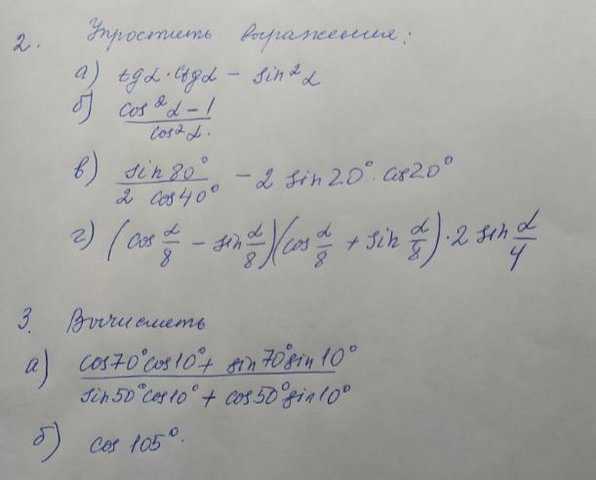 2. Упростить выражения:
а) tgα·ctgα − sin²α
б) cos²α−1 / cos²α.
в) sin80° / 2 cos40° − 2 sin20°·cos20°
г) (cos α/8 − sin α/8)(cos α/8 + sin α/8)·2 sin α/4
3. Вычислить
а) cos70°cos10° + sin70°sin10° / sin50°cos10° + cos50°sin10°
б) cos 105°.